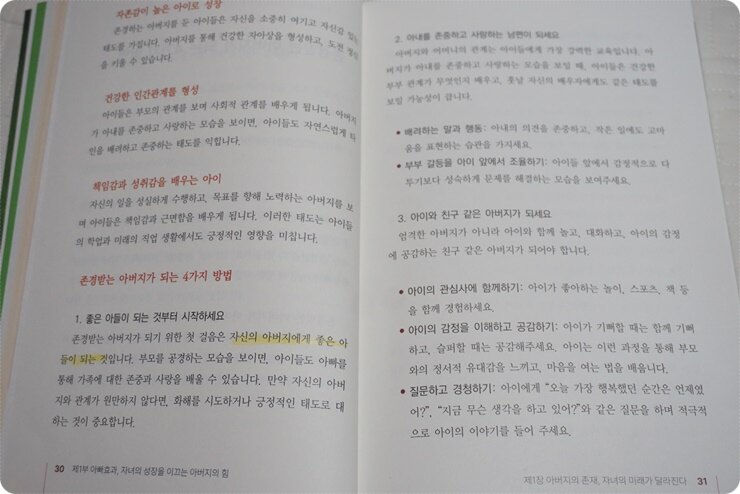 자존감이 높은 아이로 성장
존경하는 아버지를 둔 아이들은 자신을 소중히 여기고 자신감 있는
태도를 가집니다. 아버지를 통해 건강한 자아상을 형성하고, 도전 정신
을 키울 수 있습니다.
건강한 인간관계를 형성
아이들은 부모의 관계를 보며 사회적 관계를 배우게 됩니다. 아버지
가 아내를 존중하고 사랑하는 모습을 보이면, 아이들도 자연스럽게 타
인을 배려하고 존중하는 태도를 익힙니다.
책임감과 성취감을 배우는 아이
자신의 일을 성실하게 수행하고, 목표를 향해 노력하는 아버지를 보
며 아이들은 책임감과 근면함을 배우게 됩니다. 이러한 태도는 아이들
의 학업과 미래의 직업 생활에서도 긍정적인 영향을 미칩니다.
존경받는 아버지가 되는 4가지 방법
1. 좋은 아들이 되는 것부터 시작하세요
존경받는 아버지가 되기 위한 첫 걸음은 자신의 아버지에게 좋은 아
들이 되는 것입니다. 부모를 공경하는 모습을 보이면, 아이들도 아빠를
통해 가족에 대한 존중과 사랑을 배울 수 있습니다. 만약 자신의 아버
지와 관계가 원만하지 않다면, 화해를 시도하거나 긍정적인 태도로 대
하는 것이 중요합니다.
30 제1부 아빠효과, 자녀의 성장을 이끄는 아버지의 힘
2. 아내를 존중하고 사랑하는 남편이 되세요
아버지와 어머니의 관계는 아이들에게 가장 강력한 교육입니다. 아
버지가 아내를 존중하고 사랑하는 모습을 보일 때, 아이들은 건강한
부부 관계가 무엇인지 배우고, 훗날 자신의 배우자에게도 같은 태도를
보일 가능성이 큽니다.
• 배려하는 말과 행동: 아내의 의견을 존중하고, 작은 일에도 고마
움을 표현하는 습관을 가지세요.
• 부부 갈등을 아이 앞에서 조율하기: 아이들 앞에서 감정적으로 다
투기보다 성숙하게 문제를 해결하는 모습을 보여주세요.
3. 아이와 친구 같은 아버지가 되세요
엄격한 아버지가 아니라 아이와 함께 놀고, 대화하고, 아이의 감정
에 공감하는 친구 같은 아버지가 되어야 합니다.
• 아이의 관심사에 함께하기: 아이가 좋아하는 놀이, 스포츠, 책 등
을 함께 경험하세요.
• 아이의 감정을 이해하고 공감하기: 아이가 기뻐할 때는 함께 기뻐
하고, 슬퍼할 때는 공감해주세요. 아이는 이런 과정을 통해 부모
와의 정서적 유대감을 느끼고, 마음을 여는 법을 배웁니다.
• 질문하고 경청하기: 아이에게 “오늘 가장 행복했던 순간은 언제였
어?”, “지금 무슨 생각을 하고 있어?”와 같은 질문을 하며 적극적
으로 아이의 이야기를 들어 주세요.
제1장 아버지의 존재, 자녀의 미래가 달라진다 31